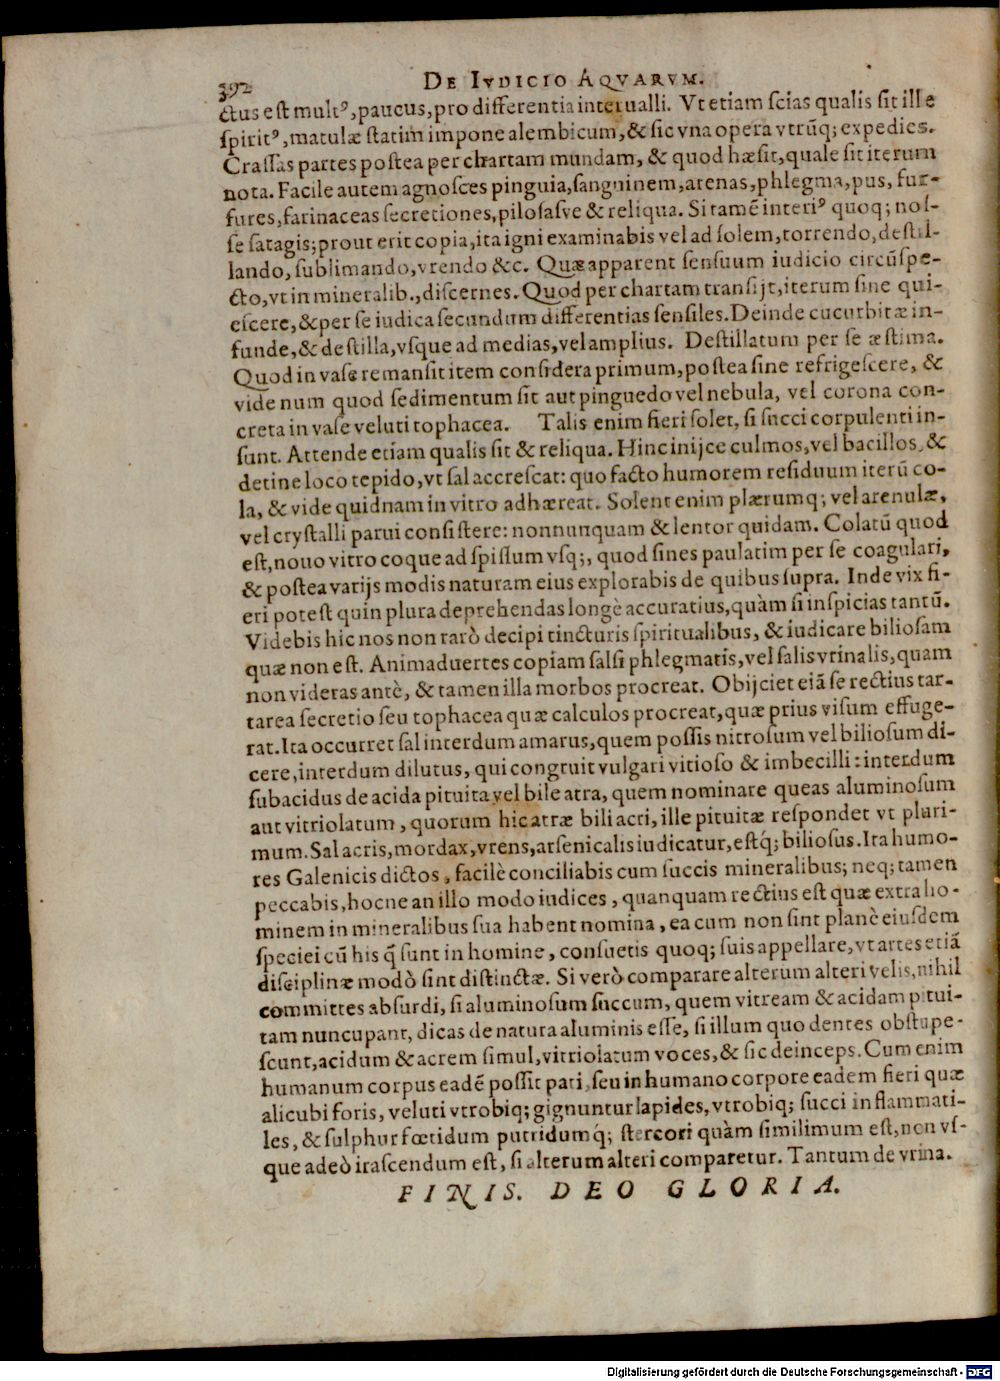 392
DE IVDICIO AQVARVM.
ctus est multꝰ, paucus, pro differentia interualli. Vt etiam scias qualis sit ille
spiritꝰ, matulæ statim impone alembicum, & sic vna opera vtrūq; expedies.
Crassas partes postea per chartam mundam, & quod hæsit, quale sit iterum
nota. Facile autem agnosces pinguia, sanguinem, arenas, phlegma, pus, fur-
fures, farinaceas secretiones, pilosasve & reliqua. Si tamē interiꝰ quoq; nos-
se satagis; prout erit copia, ita igni examinabis vel ad solem, torrendo, destil-
lando, sublimando, vrendo &c. Quæ apparent sensuum iudicio circūspe-
cto, vt in mineralib., discernes. Quod per chartam transijt, iterum sine qui-
escere, & per se iudica secundum differentias sensiles. Deinde cucurbitæ in-
funde, & destilla, vsque ad medias, vel amplius. Destillatum per se æstima.
Quod in vase remansit item considera primum, postea sine refrigescere, &
vide num quod sedimentum sit aut pinguedo vel nebula, vel corona con-
creta in vase veluti tophacea. Talis enim fieri solet, si succi corpulenti in-
sunt. Attende etiam qualis sit & reliqua. Hinc inijce culmos, vel bacillos, &
detine loco tepido, vt sal accrescat: quo facto humorem residuum iterū co-
la, & vide quidnam in vitro adhæreat. Solent enim plærumq; vel arenulæ,
vel crystalli parui consistere: nonnunquam & lentor quidam. Colatū quod
est, nouo vitro coque ad spissum vsq;, quod sines paulatim per se coagulari,
& postea varijs modis naturam eius explorabis de quibus supra. Inde vix fi-
eri potest quin plura deprehendas longè accuratius, quàm si inspicias tantū.
Videbis hic nos non rarò decipi tincturis spiritualibus, & iudicare biliosam
quæ non est. Animaduertes copiam salsi phlegmatis, vel salis vrinalis, quam
non videras antè, & tamen illa morbos procreat. Obijciet eiā se rectius tar-
tarea secretio seu tophacea quæ calculos procreat, quæ prius visum effuge-
rat. Ita occurret sal interdum amarus, quem possis nitrosum vel biliosum di-
cere, interdum dilutus, qui congruit vulgari vitioso & imbecilli: interdum
subacidus de acida pituita vel bile atra, quem nominare queas aluminosum
aut vitriolatum, quorum hic atræ bili acri, ille pituitæ respondet vt pluri-
mum. Sal acris, mordax, vrens, arsenicalis iudicatur, estq́; biliosus. Ita humo-
res Galenicis dictos, facilè conciliabis cum succis mineralibus; neq; tamen
peccabis, hocne an illo modo iudices, quanquam rectius est quæ extra ho-
minem in mineralibus sua habent nomina, ea cum non sint planè eiusdem
speciei cū his q̄ sunt in homine, consuetis quoq; suis appellare, vt artes etiā
disciplinæ modò sint distinctæ. Si verò comparare alterum alteri velis, nihil
committes absurdi, si aluminosum succum, quem vitream & acidam pitui-
tam nuncupant, dicas de natura aluminis esse, si illum quo dentes obstupe-
scunt, acidum & acrem simul, vitriolatum voces, & sic deinceps. Cum enim
humanum corpus eadē possit pati, seu in humano corpore eadem fieri quæ
alicubi foris, veluti vtrobiq; gignuntur lapides, vtrobiq; succi inflammati-
les, & sulphur fœtidum putridumq́; stercori quàm simillimum est, non vs-
que adeò irascendum est, si alterum alteri comparetur. Tantum de vrina.
FINIS. DEO GLORIA.
Digitalisierung gefördert durch die Deutsche Forschungsgemeinschaft - DFG